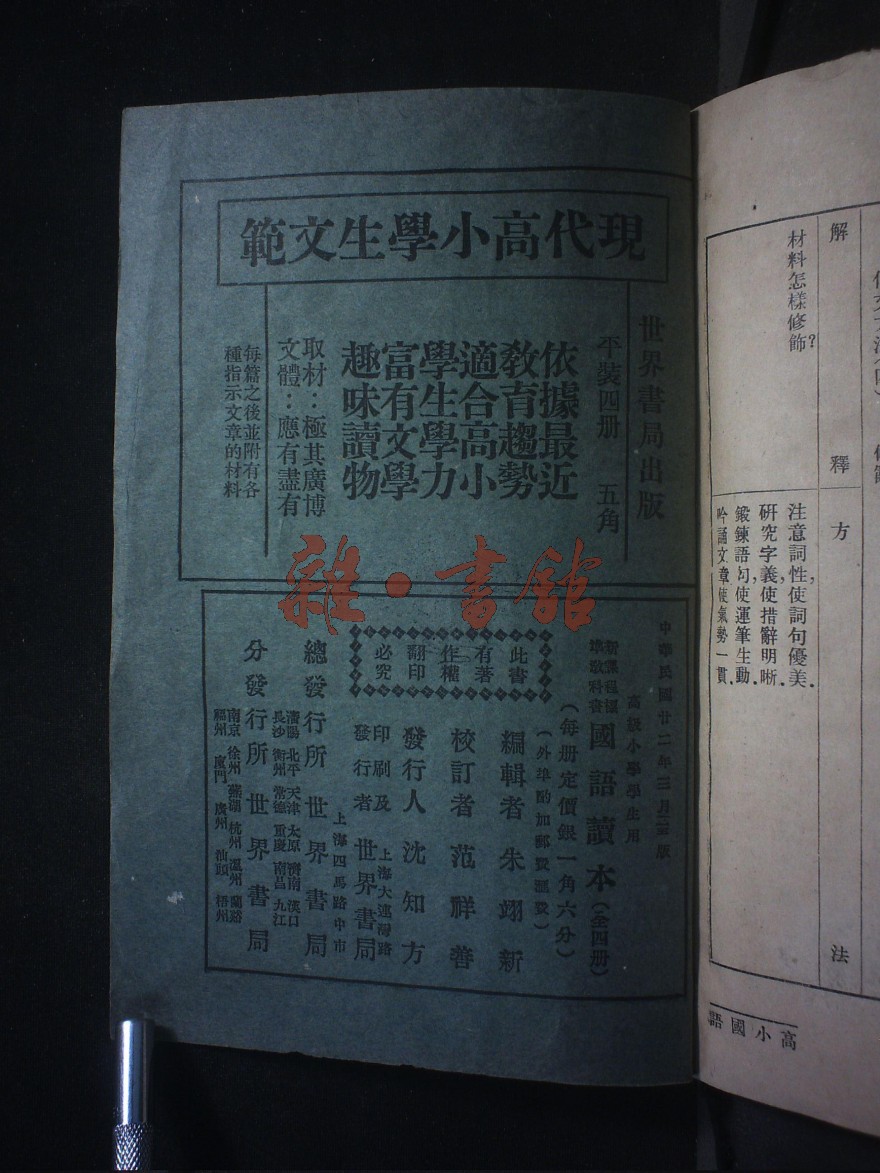 現代高小學生文範
世界書局出版
平裝四册 五角
依據最近
教育趨勢
適合高小
學生學力
富有文學
趣味讀物
取材：極其廣博
文體：應有盡有
每篇之後並附有各
種指示文章的材料
中華民國廿二年三月三版
高級小學學生用
新課程標
準教科書
國語讀本（全四册）
（每册定價銀一角六分）
（外埠酌加郵費匯費）
此書
有著
作權
翻印
必究
編輯者 朱翊新
校訂者 范祥善
發行人 沈知方
印刷及
發行者
上海大連灣路
世界書局
上海四馬路中市
總發行所 世界書局
瀋陽 北平 天津 太原 濟南 漢口
長沙 衡州 常德 重慶 南昌 九江
分發行所 世界書局
南京 徐州 蕪湖 杭州 溫州 蘭谿
福州 廈門 廣州 汕頭 梧州
雜·書館
解釋方法
材料怎樣修飾？
注意詞性，使詞句優美．
研究字義，使措辭明晰．
鍛鍊語句，使運筆生動．
吟誦文章，使氣勢一貫．
高小國語